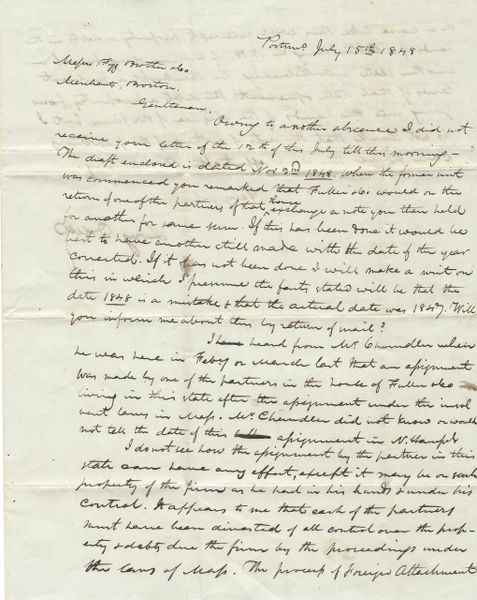 Portsmo July 15th 1848
Messrs Fogg Brother & Co
Merchants, Boston.
Gentlemen.
Owing to another absence I did not
receive your letter of the 12th of this July till this morning —
The draft enclosed is dated Nov 2nd 1848. When the former suit
was commenced you remarked that Fuller & Co would on the
return of one of the partners of that house exchange a note you then held
for another for same sum. If this has been done it would be
best to have another still made with the date of the year
corrected. If it has not been done I will make a writ on
this in which I presume the facts stated will be that the
date 1848 is a mistake & that the actual date was 1847. Will
you inform me about this by return of mail?
I have heard from Mr. Chandler when
he was here in Feby or March last that an assignment
was made by one of the partners in the house of Fuller & Co
living in this state after the assignment under the insol
vent laws in Mass. Mr. Chandler did not know or would
not tell the date of this assignment in N. Hamps
I do not see how the assignment by the partner in this
state can have any effect, except it may be on such
property of the firm as he had in his hands & under his
control. It appears to me that each of the partners
must have been divested of all control over the prop-
erty & debts due the firm by the proceedings under
the laws of Mass. The process of Foreign Attachment